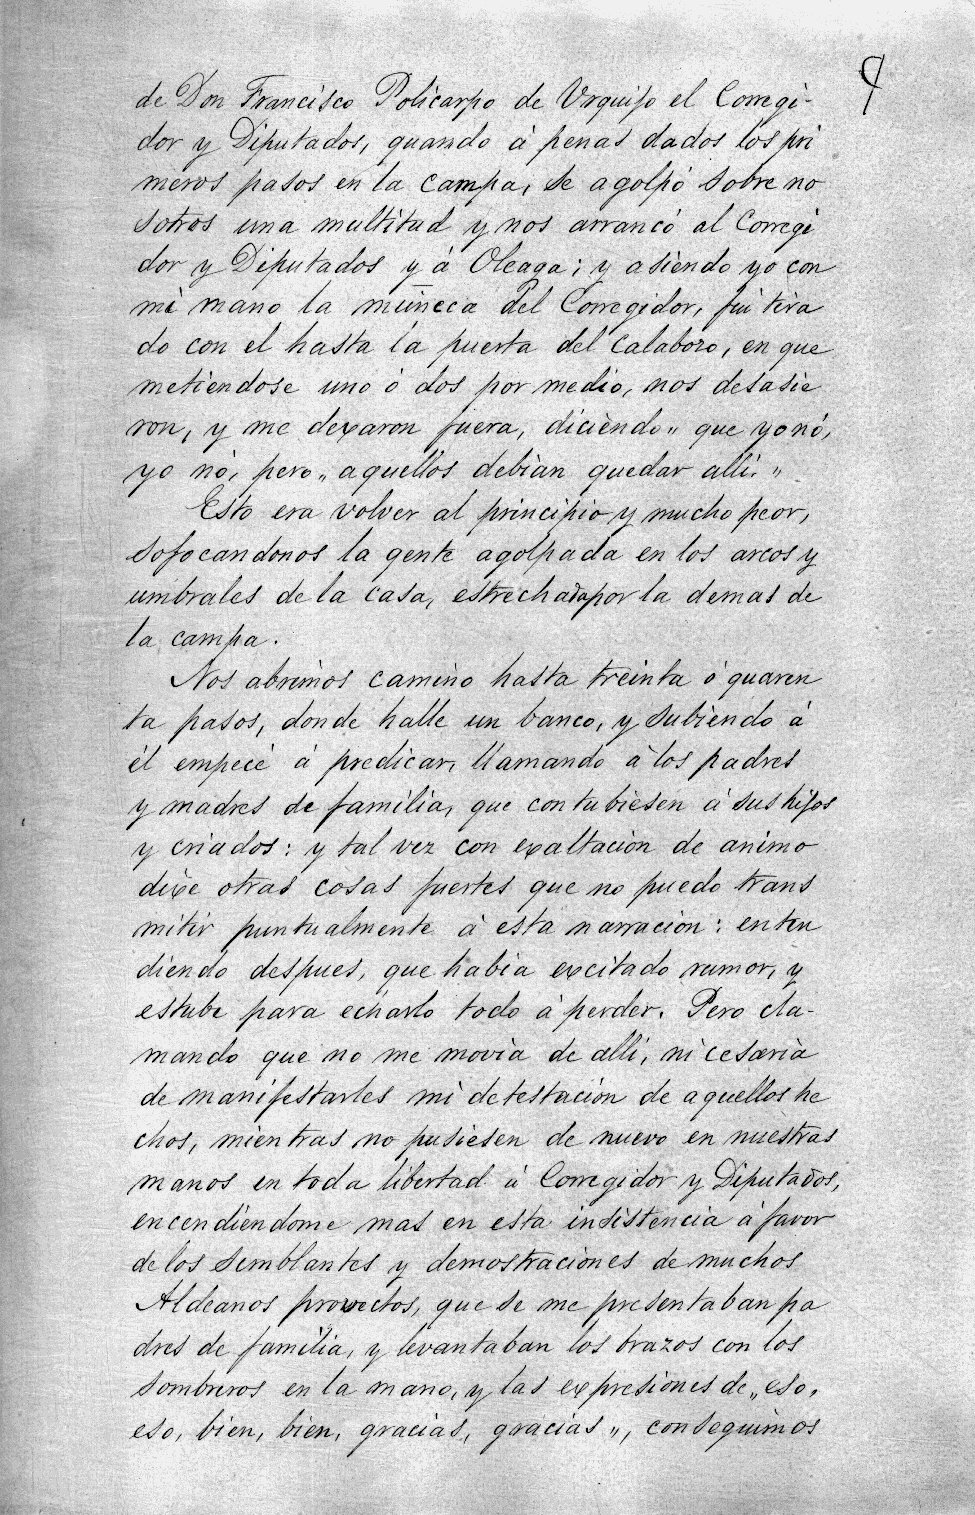 9
de Don Francisco Policarpo de Urquijo el Corregi-
dor y Diputados, quando á penas dados los pri
meros pasos en la campa, se agolpó sobre no
sotros una multitud y nos arrancó al Corregi
dor y Diputados y á Oleaga; y asiendo yo con
mi mano la muñeca del Corregidor, fui tira
do con el hasta la puerta del calabozo, en que
metiendose uno ó dos por medio, nos desasie
ron, y me dexaron fuera, diciendo „ que yo nó,
yo nó, pero „ aquellos debian quedar alli. „
Esto era volver al principio y mucho peor,
sofocandonos la gente agolpada en los arcos y
umbrales de la casa, estrechada por la demas de
la campa.
Nos abrimos camino hasta treinta ó quaren
ta pasos, donde halle un banco, y subiendo á
él empecé á predicar, llamando á los padres
y madres de familia, que contubiesen á sus hijos
y criados: y tal vez con exaltacion de animo
dixe otras cosas fuertes que no puedo trans
mitir puntualmente á esta narracion: enten
diendo despues, que habia excitado rumor, y
estube para echarlo todo á perder. Pero cla-
mando que no me movia de alli, ni cesaria
de manifestarles mi detestacion de aquellos he
chos, mientras no pusiesen de nuevo en nuestras
manos en toda libertad á Corregidor y Diputados,
encendiendome mas en esta insistencia á favor
de los semblantes y demostraciones de muchos
Aldeanos provectos, que se me presentaban pa
dres de familia, y levantaban los brazos con los
sombreros en la mano, y las expresiones de „ eso,
eso, bien, bien, gracias, gracias „, conseguimos